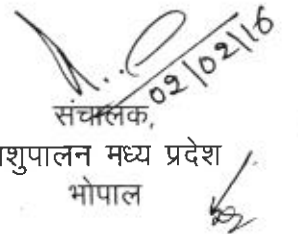 02/02/16
संचालक,
शुपालन मध्य प्रदेश
भोपाल